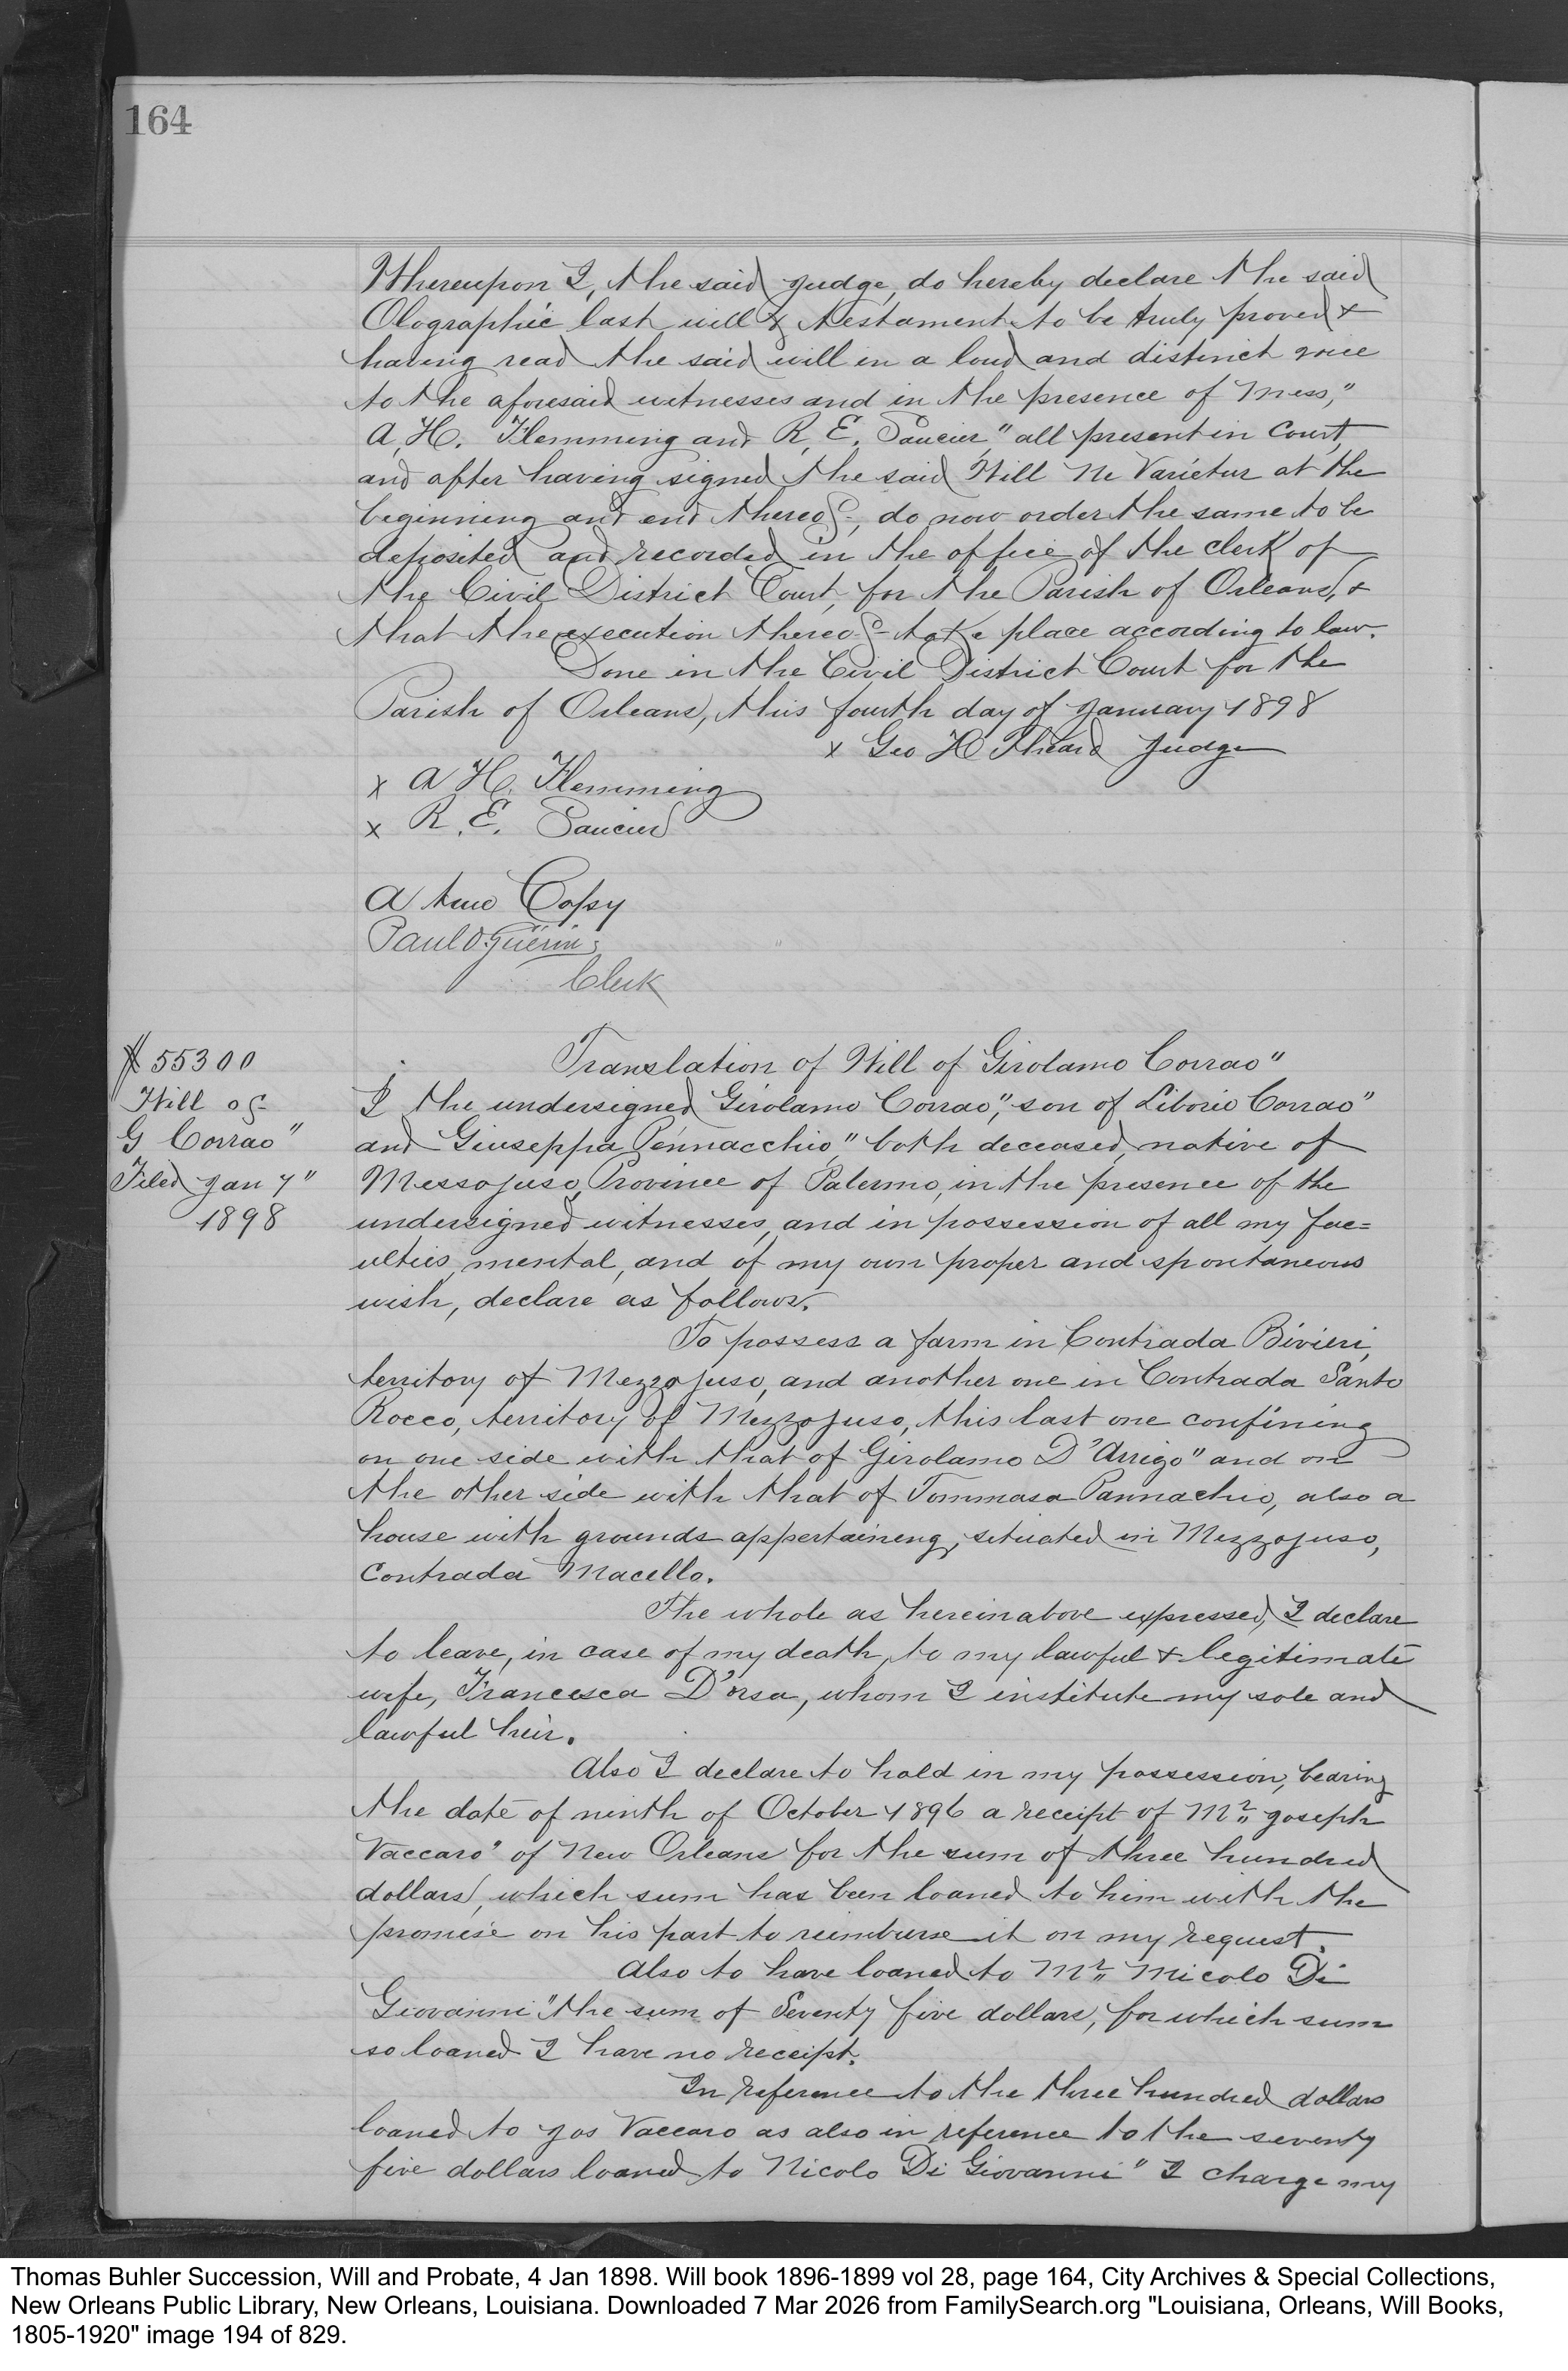 164
Whereupon I, the said Judge, do hereby declare the said
Olographic last will & testament to be truly proved &
having read the said will in a loud and distinct voice
to the aforesaid witnesses and in the presence of Mess,"
A, H. Flemming and R, E. Saucier," all present in Court,
and after having signed the said Will Ne Varietur at the
beginning and end thereof, do now order the same to be
deposited and recorded in the office of the clerk of
the Civil District Court, for the Parish of Orleans, &
that the execution thereof take place according to law.
Done in the Civil District Court for the
Parish of Orleans, this fourth day of January 1898
x Geo H Theard Judge
x A H. Flemming
x R. E. Saucier
A true Copy
Paul D. Guerin
Clerk
# 55300
Will of
G Corrao"
Filed Jan 7"
1898
Translation of Will of Girolamo Corrao"
I the undersigned Girolamo Corrao", son of Liborio Corrao"
and Giuseppa Pennacchio," both deceased, native of
Messojuso, Province of Palermo, in the presence of the
undersigned witnesses, and in possession of all my fac=
ulties, mental, and of my own proper and spontaneous
wish, declare as follows.
To possess a farm in Contrada Bivieri,
territory of Mezzojuso, and another one in Contrada Santo
Rocco, territory of Mezzojuso, this last one confining
on one side with that of Girolamo D'Arrigo" and on
the other side with that of Tommasa Pannachio, also a
house with grounds appertaineng, situated in Mezzojuso,
Contrada Macello.
The whole as hereinabove expressed, I declare
to leave, in case of my death, to my lawful & legitimate
wife, Francesca D'orsa, whom I institute my sole and
lawful heir.
Also I declare to hold in my possession, bearing
the date of ninth of October 1896 a receipt of Mr" Joseph
Vaccaro" of New Orleans for the sum of three hundred
dollars, which sum has been loaned to him with the
promise on his part to reimburse it on my request.
Also to have loaned to Mr" Micolo Di
Giovanni" the sum of Seventy five dollars, for which sum
so loaned I have no receipt.
In reference to the three hundred dollars
loaned to Jos Vaccaro as also in reference to the seventy
five dollars loaned to Nicolo Di Giovanni" I charge my
Thomas Buhler Succession, Will and Probate, 4 Jan 1898. Will book 1896-1899 vol 28, page 164, City Archives & Special Collections,
New Orleans Public Library, New Orleans, Louisiana. Downloaded 7 Mar 2026 from FamilySearch.org "Louisiana, Orleans, Will Books,
1805-1920" image 194 of 829.